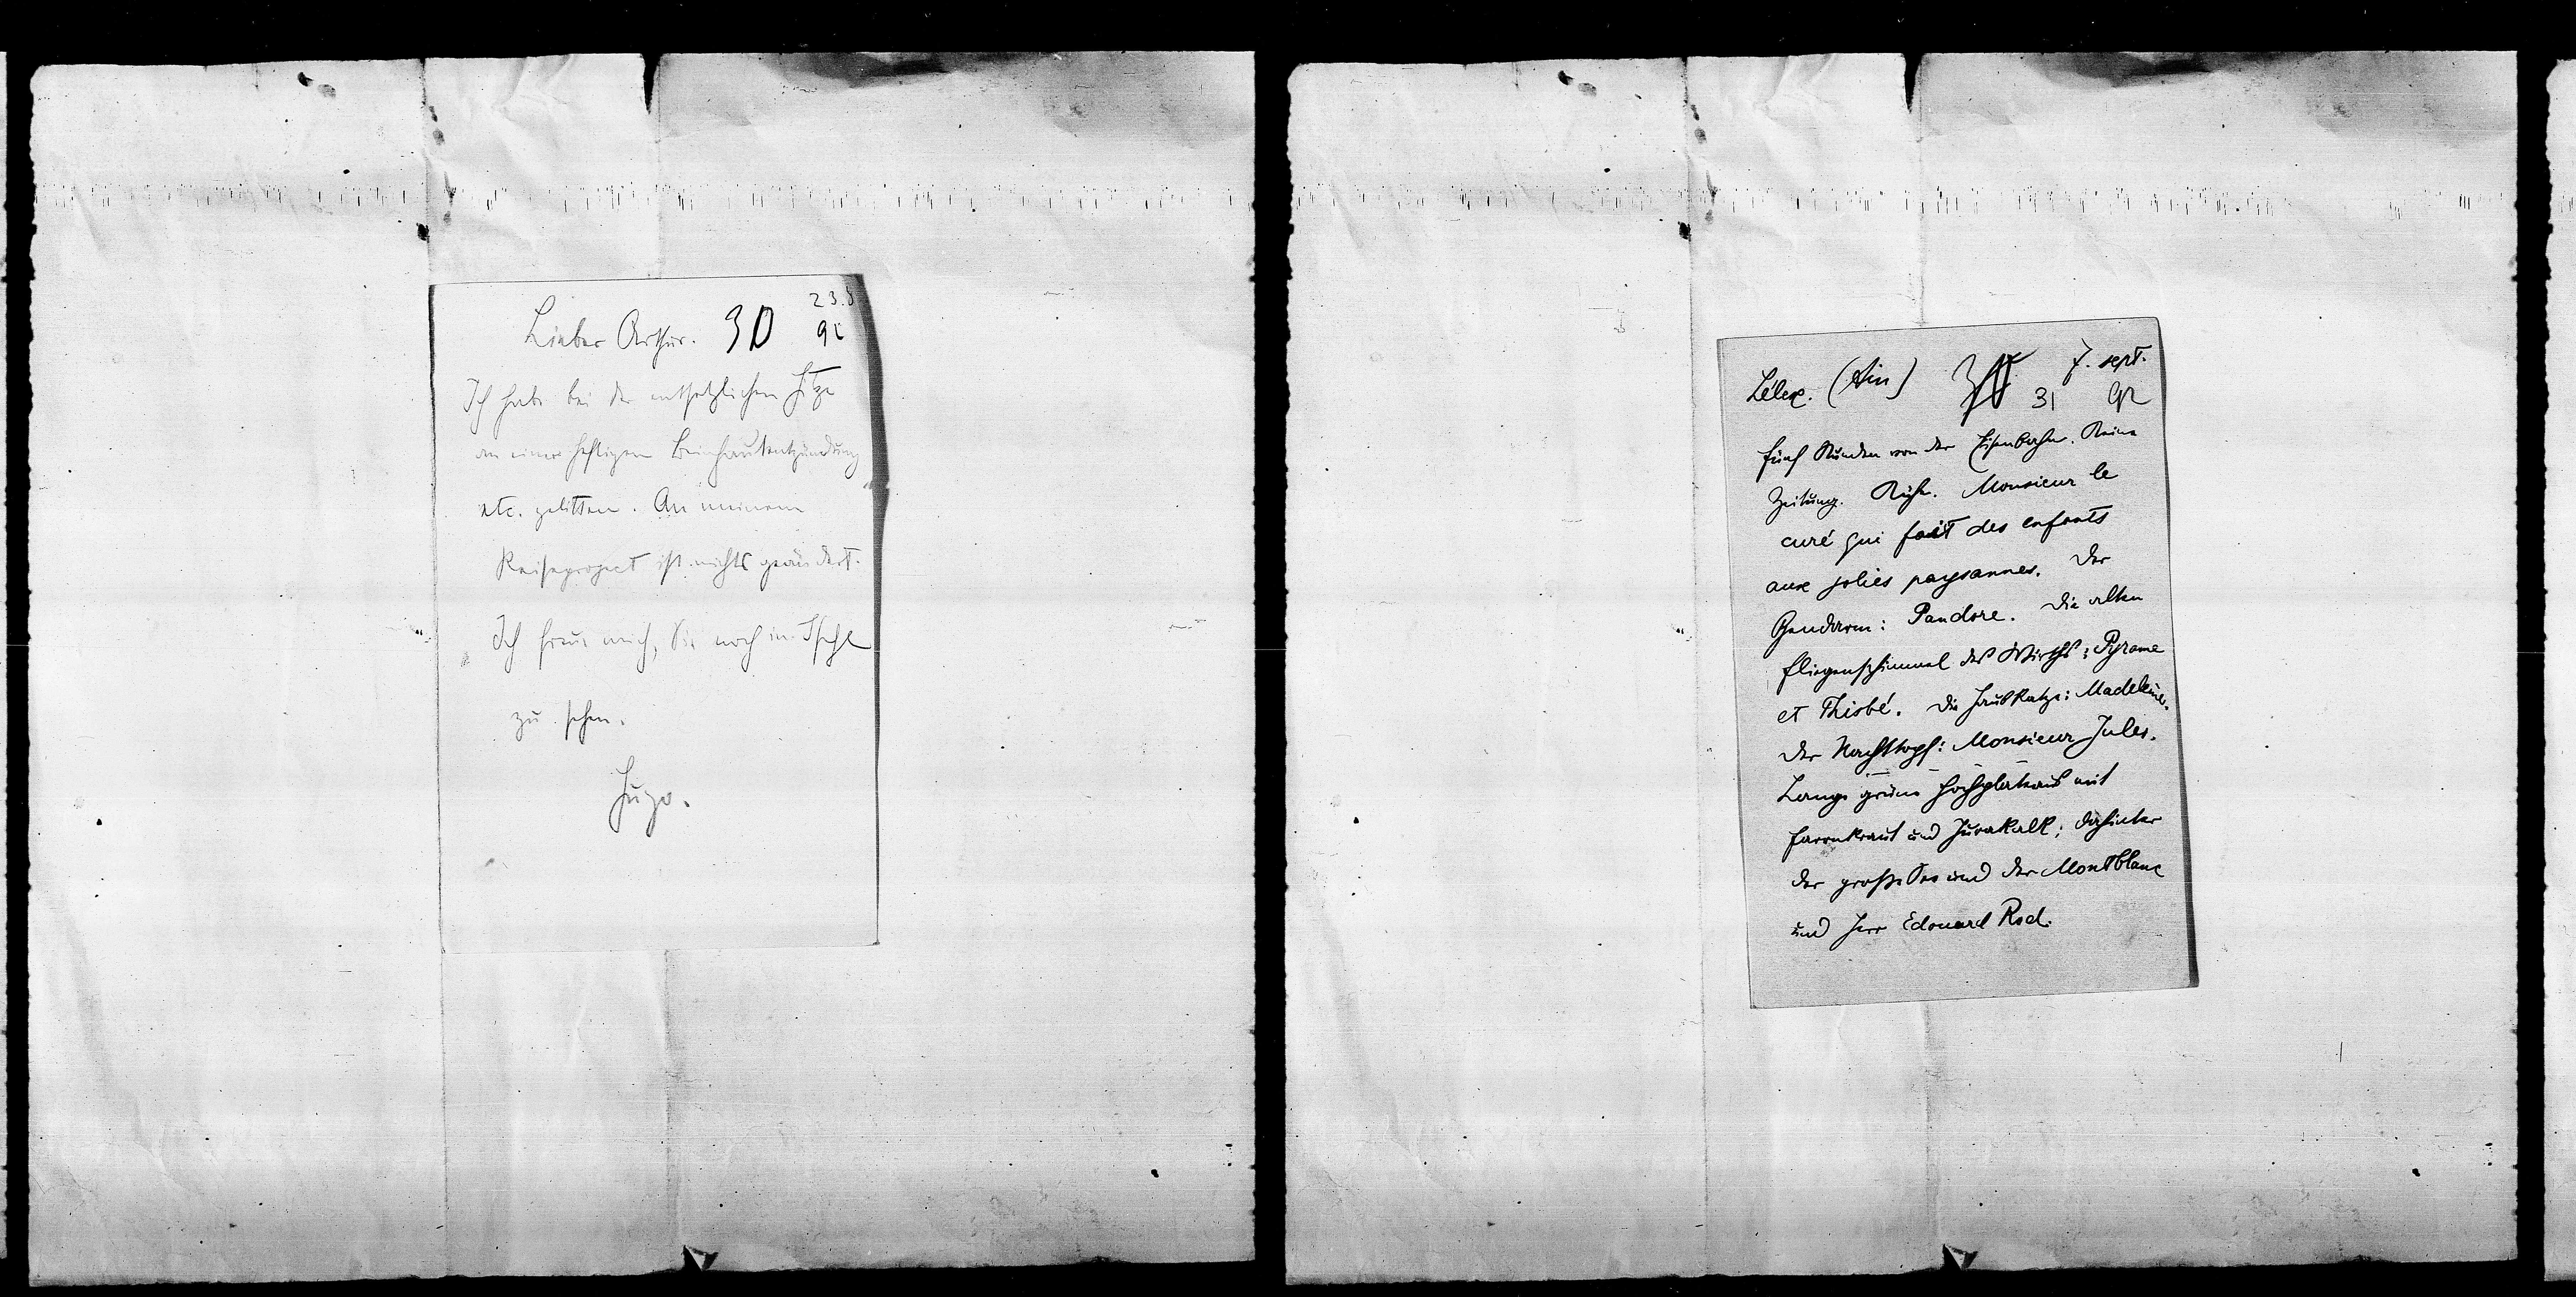 23.8
Lieber Arthur. 30 92
Ich habe bei der entsetzlichen Hitze
an einer heftigen Beinhautentzündung
etc. gelitten. An meinem
Reiseproject ist nichts geändert.
Ich freue mich, Sie noch in Ischl
zu sehen.
Hugo.
Lélex. (Ain) 31 7. sept. 92
Fünf Stunden von der Eisenbahn. Keine
Zeitung. Ruhe. Monsieur le
curé qui fait des enfants
aux jolies paysannes. Der
Gendarm: Pandore. Die alten
Fliegenschimmel des Wirths: Pyrame
et Thisbé. Die Hauskatze: Madeleine.
Der Nachttopf: Monsieur Jules.
Lange grüne Hochplateaus mit
Farrenkraut und Jurakalk; dahinter
der große See und der Montblanc
und Herr Edouard Rod.